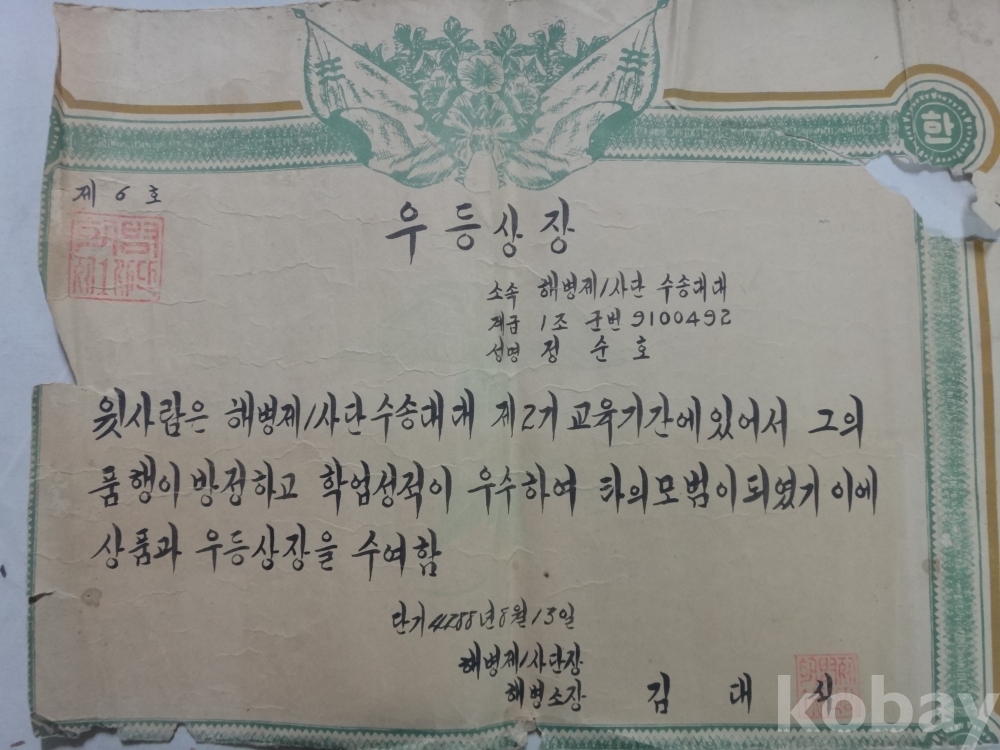 한
제 6 호
우등상장
소속 해병제1사단 수송대대
계급 1조 군번 9100492
성명 정 순 호
윗사람은 해병제1사단수송대대 제2기 교육기간에있어서 그의
품행이 방정하고 학업성적이 우수하여 타의모범이되였기 이에
상품과 우등상장을 수여함
단기 4288년 8월 13일
해병제1사단장
해병소장 김 대 식
kobay